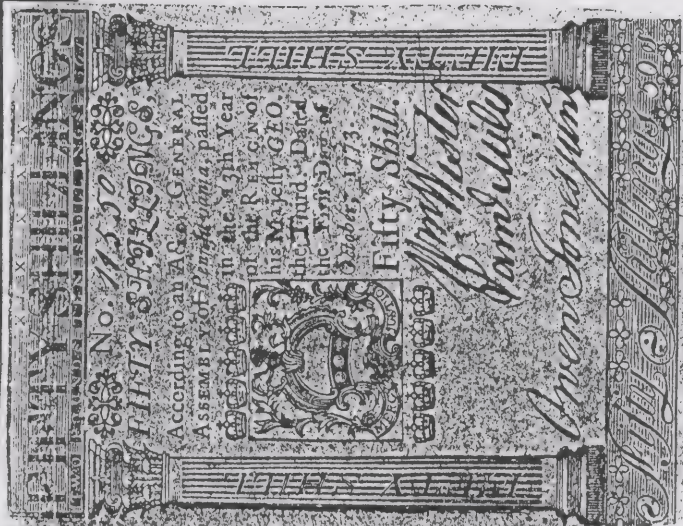 FIFTY SHILLINGS
No. 11550
FIFTY SHILLINGS
According to an Act of GENERAL
ASSEMBLY of Pennsylvania, passed
in the 13th Year
of the REIGN of
his Majesty GEO.
the Third. Dated
the First Day of
October, 1773.
Fifty Shill.
FIFTY SHILL.
FIFTY SHILL.
Owen Jones jun
Fifty Shillings. 50